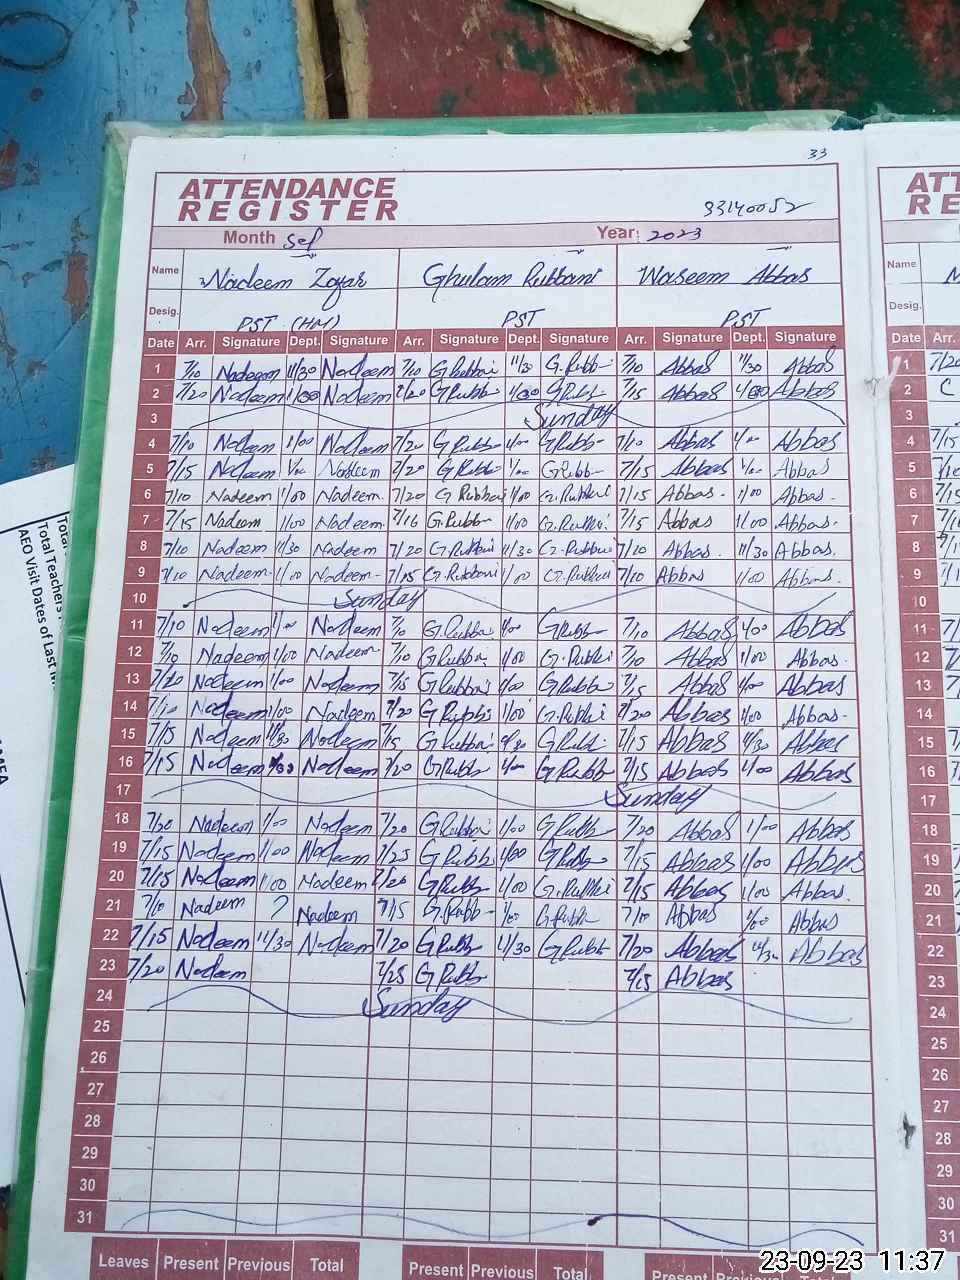 33
ATTENDANCE
REGISTER
33140052
Month Sep Year 2023
Name Nadeem Ghulam Rubbani Waseem Abbas
Desig. PST (HM) PST PST
Date Arr. Signature Dept. Signature Arr. Signature Dept. Signature Arr. Signature Dept. Signature
1 7/10 Nadeem 11/30 Nadeem 7/10 11/30 G.Rubb 7/10 Abbas 11/30 Abbas
2 7/20 Nadeem 1/00 Nadeem 7/20 G Rubb 1/00 G Rubb 7/15 Abbas 1/00 Abbas
3 Sunday
4 7/10 Nadeem 1/00 Nadeem 7/20 G Rubb 1/00 G Rubb 7/10 Abbas 1/00 Abbas
5 7/15 Nadeem 1/00 Nadeem 7/20 G Rubb 1/00 G Rubb 7/15 Abbas 1/00 Abbas
6 7/10 Nadeem 1/00 Nadeem. 7/20 G Rubbani 1/00 7/15 Abbas. 1/00 Abbas.
7 7/15 Nadeem 1/00 Nadeem. 7/16 G.Rubb 1/00 7/15 Abbas 1/00 Abbas.
8 7/10 Nadeem 11/30 Nadeem 7/20 11/30 7/10 Abbas. 11/30 Abbas.
9 7/10 Nadeem 1/00 Nadeem 7/15 G.Rubbani 1/00 7/10 Abbas 1/00 Abbas.
10 Sunday
11 7/10 Nadeem 1/00 Nadeem 7/10 1/00 G Rubb 7/10 Abbas 1/00 Abbas
12 7/10 Nadeem 1/00 Nadeem 7/10 G Rubba 1/00 7/10 Abbas 1/00 Abbas.
13 7/20 Nadeem 1/00 Nadeem 7/15 1/00 G Rubb 7/15 Abbas 1/00 Abbas
14 7/10 Nadeem 1/00 Nadeem 7/20 1/00 7/20 Abbas 1/00 Abbas.
15 7/15 Nadeem 11/30 Nadeem 7/15 11/30 G Rubb 7/15 Abbas 11/30 Abbas
16 7/15 Nadeem Nadeem 7/20 G Rubb 1/00 G Rubb 7/15 Abbas 1/00 Abbas
17 Sunday
18 7/20 Nadeem 1/00 Nadeem 7/20 1/00 G Rubb 7/20 Abbas 1/00 Abbas
19 7/15 Nadeem 1/00 Nadeem 7/25 G Rubb 1/00 G Rubb 7/15 Abbas 1/00 Abbas
20 7/15 Nadeem 1/00 Nadeem 7/20 G Rubb 1/00 7/15 Abbas 1/00 Abbas.
21 7/10 Nadeem ? Nadeem 7/15 G.Rubb 1/00 G Rubb 7/10 Abbas 1/00 Abbas
22 7/15 Nadeem 11/30 Nadeem 7/20 G Rubb 11/30 G Rubb 7/20 Abbas 11/30 Abbas
23 7/20 Nadeem 7/25 G Rubb 7/15 Abbas
24 Sunday
25
26
27
28
29
30
31
Leaves Present Previous Total Present Previous Total Present Previous Total
ATT
RE
Name M
Desig.
Date Arr.
1 7/20
2 C
3
4 7/15
5
6 7/15
7
8
9
10
11
12
13
14
15
16
17
18
19
20
21
22
23
24
25
26
27
28
29
30
31
Total Teachers
AEO Visit Dates of Last
23-09-23 11:37